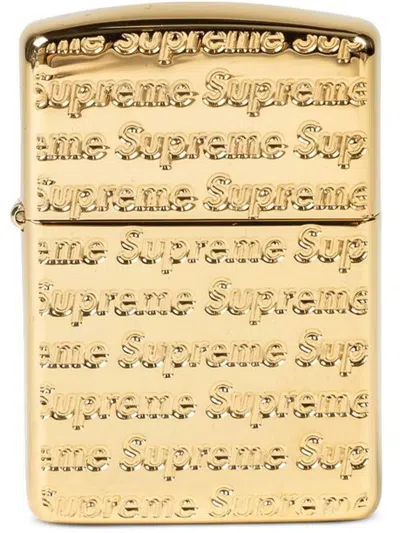 Supreme Sup
Supreme Supreme
eme Supreme Sup
Supreme Supreme
eme Supreme Sup
Supreme Supreme
eme Supreme Sup
Supreme Supreme
eme Supreme Sup
Supreme Supreme